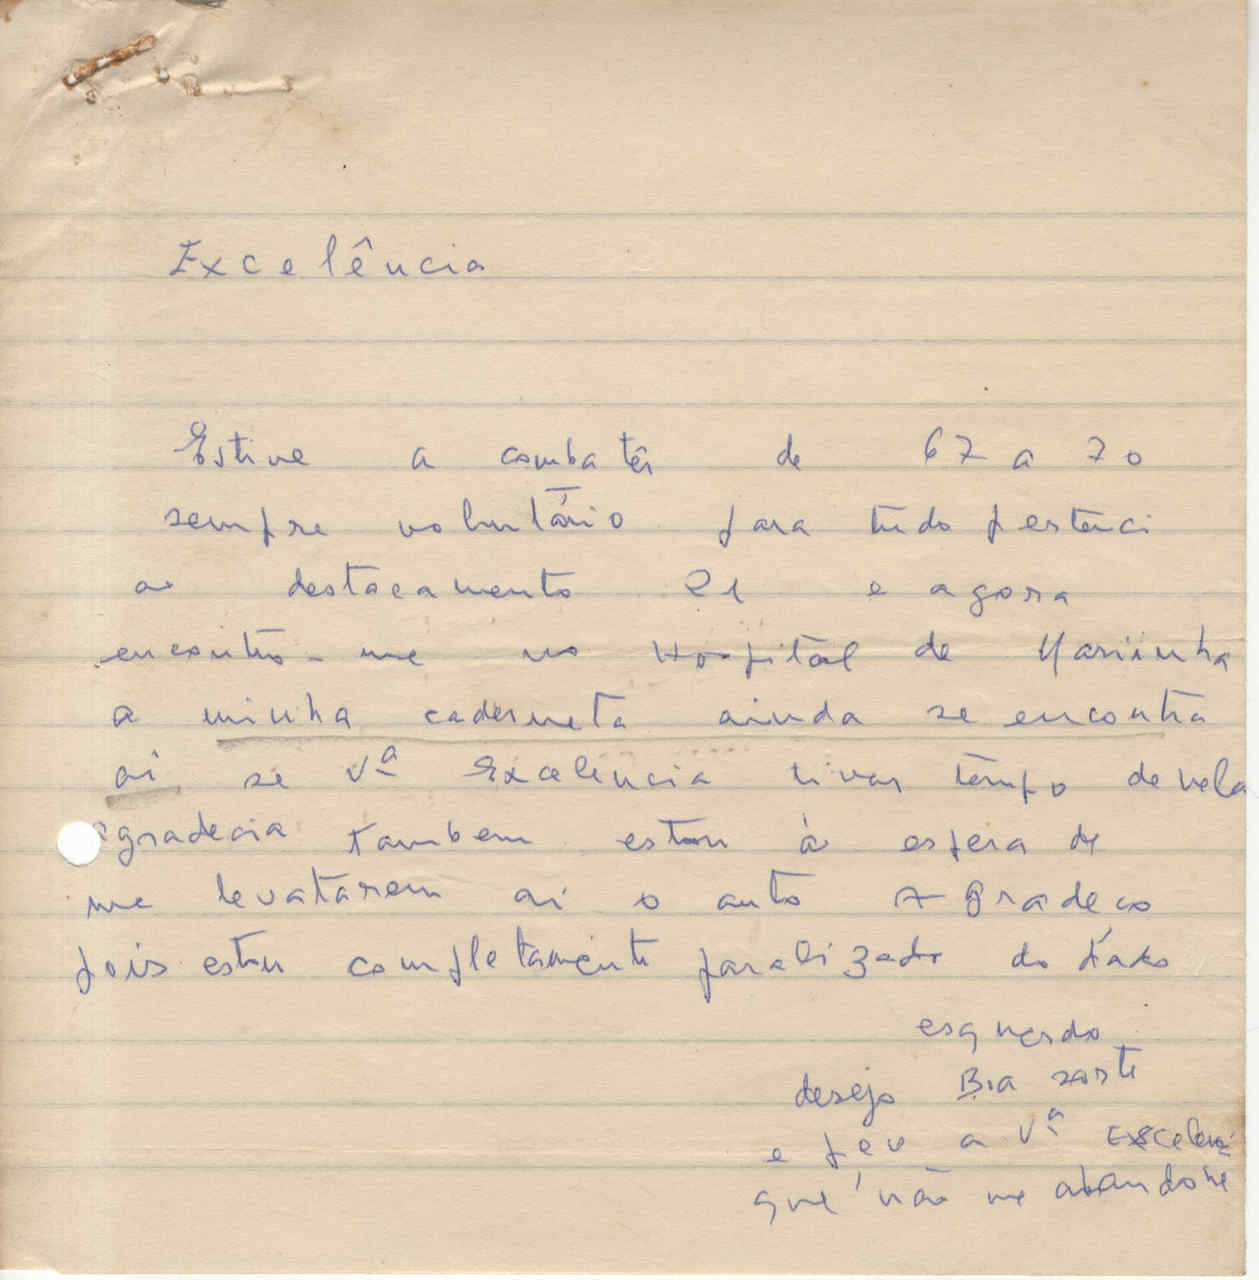 Excelência
Estive a combatêr de 67 a 70
sempre voluntário para tudo pertenci
ao destacamento 21 e agora
encontro-me no Hospital de Mariinha
a minha caderneta ainda se encontra
ai se Vª Excelencia tiver tempo de vela
agradecia tambem estou à espera de
me levatarem ai o auto Agradeço
pois estou completamente paralizado do Lado
esquerdo
desejo Boa sorte
e peço a Vª
que não me abandone